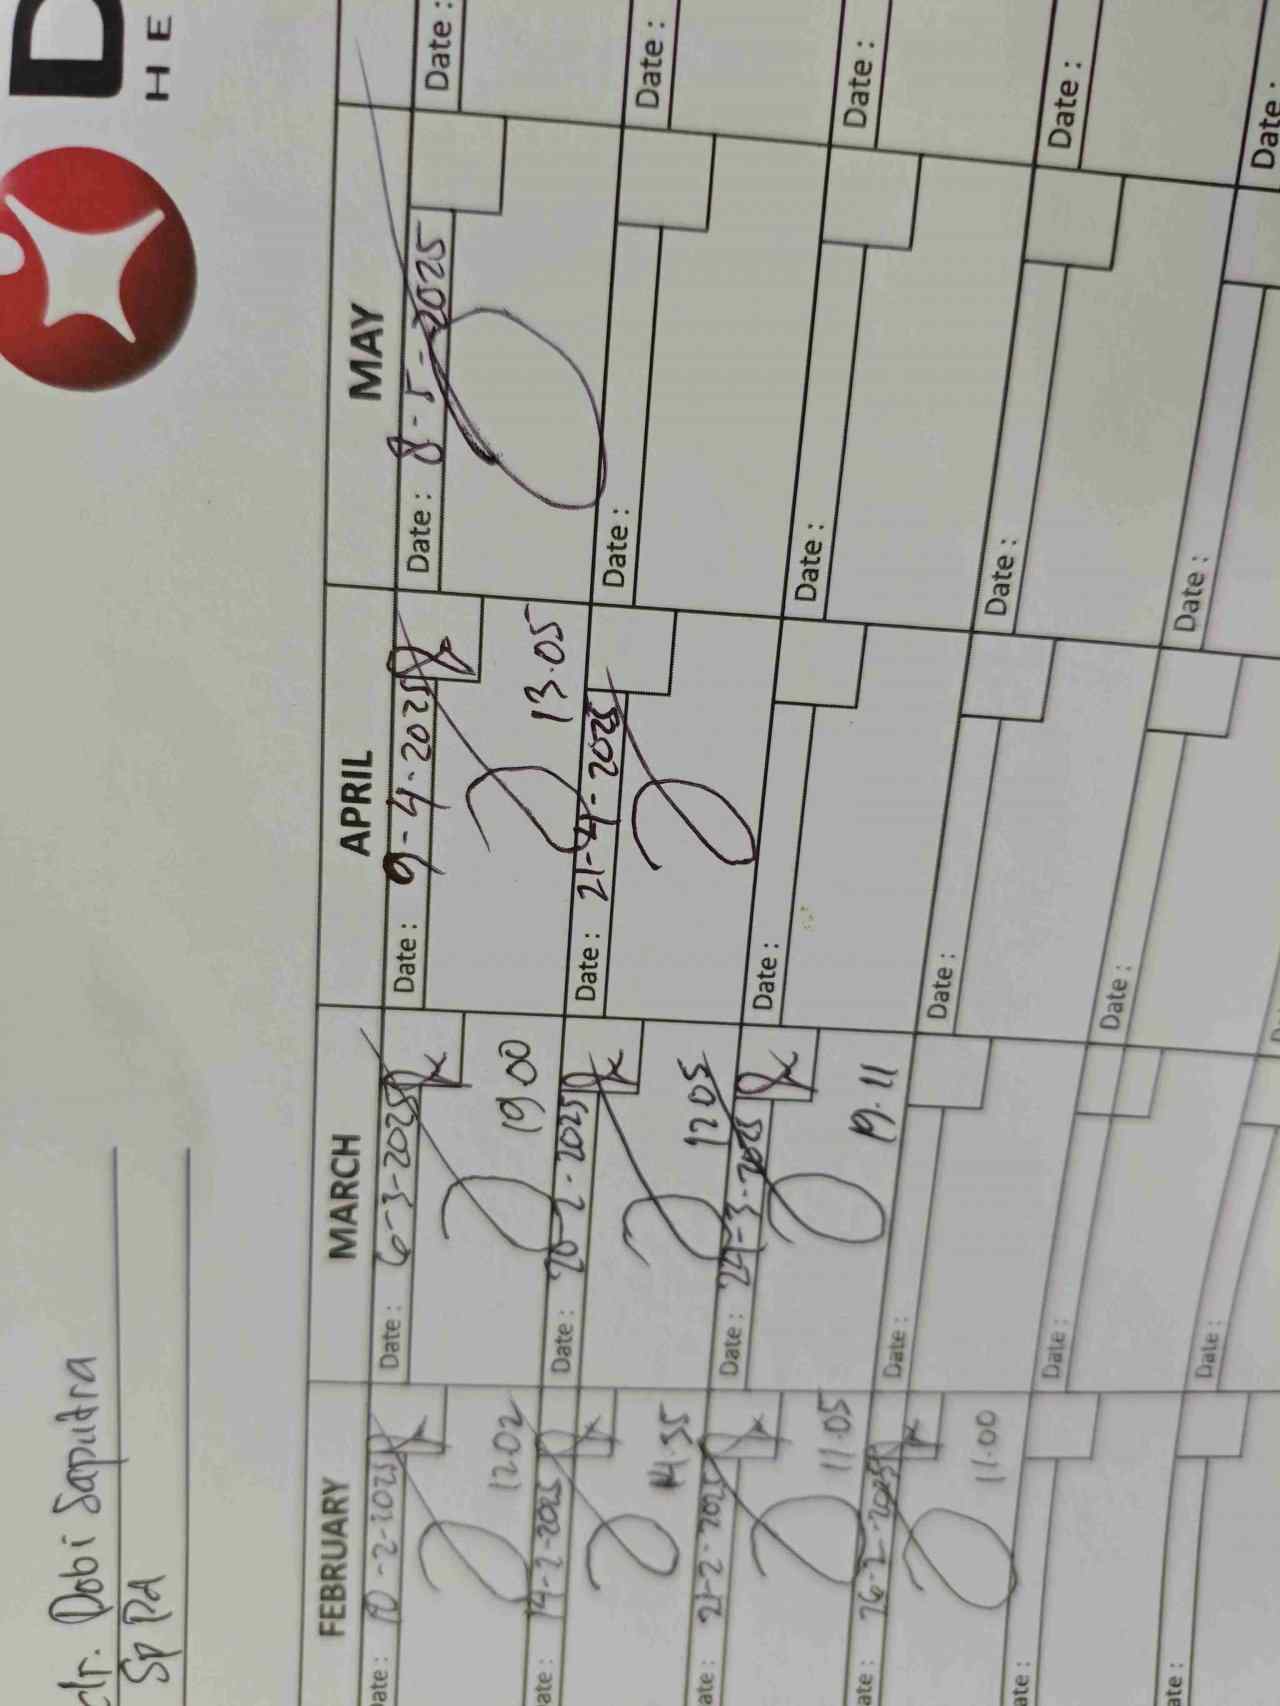 dr. Dobi Saputra
Sp PD
D
HE
FEBRUARY MARCH APRIL MAY
ate: 10-2-2025 Date: 6-3-2025 Date: 9-4-2025 Date: 8-5-2025 Date:
12.02 19.00 13.05
ate: 14-2-2025 Date: 20-2-2025 Date: 21-4-2025 Date: Date:
14.35 12.05
ate: 21-2-2025 Date: 24-3-2025 Date: Date: Date:
11.05 19.11
ate: 26-2-2025 Date: Date: Date: Date:
11.00
ate: Date: Date: Date: Date:
ate: Date: